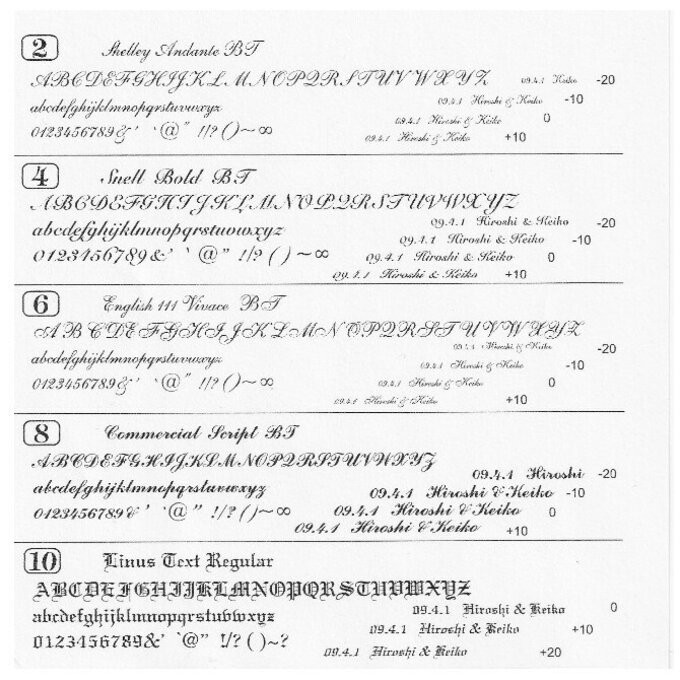 2 Shelley Andante BT
ABCDEFGHIJKLMNOPQRSTUVWXYZ 09.4.1 Keiko -20
abcdefghijklmnopqrstuvwxyz 09.4.1 Hiroshi & Keiko -10
0123456789&' '@" !/? ()~∞ 09.4.1 Hiroshi & Keiko 0
09.4.1 Hiroshi & Keiko +10
4 Snell Bold BT
ABCDEFGHIJKLMNOPQRSTUVWXYZ
09.4.1 Hiroshi & Keiko -20
abcdefghijklmnopqrstuvwxyz 09.4.1 Hiroshi & Keiko -10
0123456789&' ' @" !/? ( ) ~∞ 09.4.1 Hiroshi & Keiko 0
09.4.1 Hiroshi & Keiko +10
6 English 111 Vivace BT
ABCDEFGHIJKLMNOPQRSTUVWXYZ
09.4.1 Hiroshi & Keiko -20
abcdefghijklmnopqrstuvwxyz 09.4.1 Hiroshi & Keiko -10
0123456789&' '@" !/? ()~∞ 09.4.1 Hiroshi & Keiko 0
09.4.1 Hiroshi & Keiko +10
8 Commercial Script BT
ABCDEFGHIJKLMNOPQRSTUVWXYZ
09.4.1 Hiroshi -20
abcdefghijklmnopqrstuvwxyz 09.4.1 Hiroshi & Keiko -10
0123456789& ' '@" !/? ( ) ~∞ 09.4.1 Hiroshi & Keiko 0
09.4.1 Hiroshi & Keiko +10
10 Linus Text Regular
ABCDEFGHIJKLMNOPQRSTUVWXYZ
09.4.1 Hiroshi & Keiko 0
abcdefghijklmnopqrstuvwxyz
09.4.1 Hiroshi & Keiko +10
0123456789&' `@" !/? ( )~?
09.4.1 Hiroshi & Keiko +20